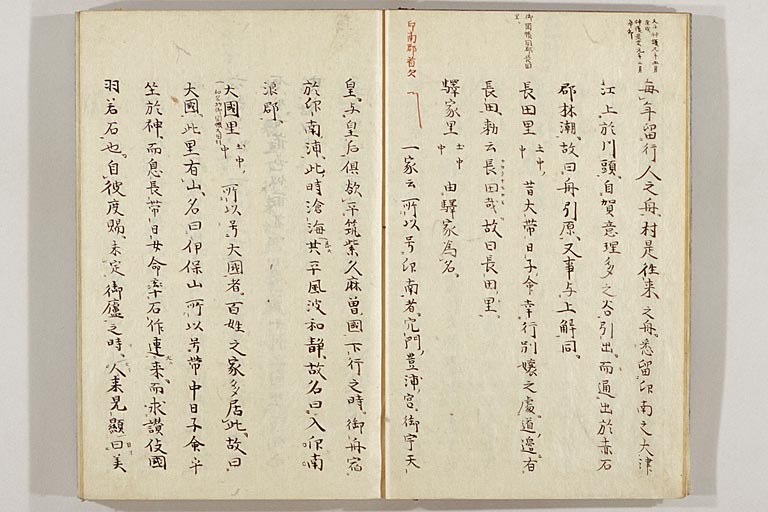 每年留行人之舟村是往来之舟悉留印南之大津
江上於川頭自賀意理多之谷引出而通出於赤石
郡林潮故曰舟引原又事与上解同
長田里 土中中 昔大帯日子命幸行別嬢之處道邊有
長田勅云長田哉故曰長田里
驛家里 土中中 由驛家為名
印南郡首欠
一家云所以号印南者穴門豊浦宮御宇天
皇与皇后俱欲平筑紫久麻曽國下行之時御舟宿
於印南浦此時滄海甚平風波和静故名曰入印南
浪郡
大國里 土中中 所以号大國者百姓之家多居此故曰
大國此里有山名曰伊保山所以号帯中日子命乎
坐於神而息長帯日女命率石作連来而求讃伎國
羽若石也自彼度賜未定御廬之時人来見顯曰美